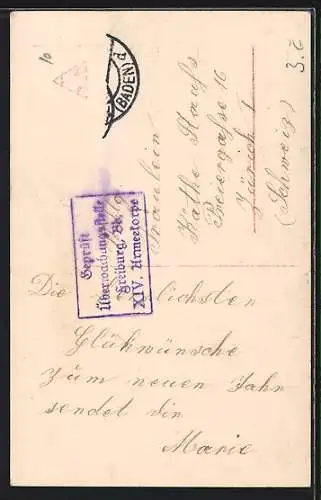 10
3.-
(BADEN) d
Geprüft
Überwachungsstelle
Freiburg, Br.
XIV. Armeekorps
Fräulein
Käthe
16
Zürich 1
(Schweiz)
Die herzlichsten
Glükwünsche
zum neuen Jahr
sendet dir
Marie